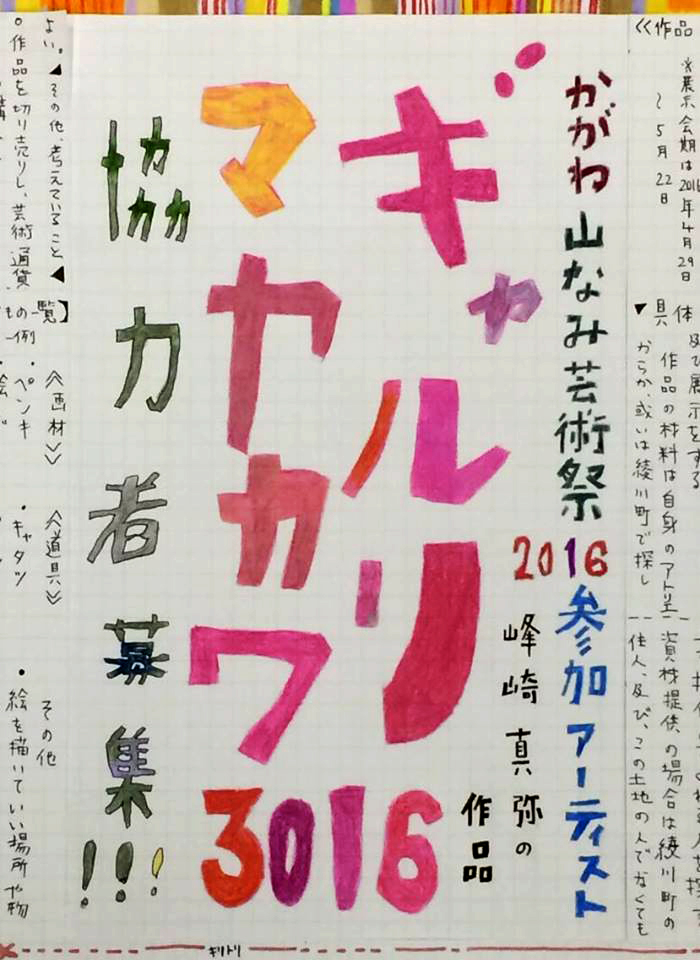 ≪作品
※展示会期は2016年4月29日
～5月22日
▼具体
及び展示をする
作品の材料は自身のアトリエ
からか、或いは綾川町で探し
資材提供の場合は綾川町の
住人、及び、この土地の人でなくても
かがわ山なみ芸術祭2016参加アーティスト
峰崎真弥の
作品
ギャルリ
マヤカワ
3016
協力者募集!!!
よい。▲その他、考えていること▲
○作品を切り売りし、芸術通貨
もの一覧】
一例
≪画材≫
・ペンキ
≪道具≫
・キャタツ
その他
・絵を描いていい場所や物
キリトリ